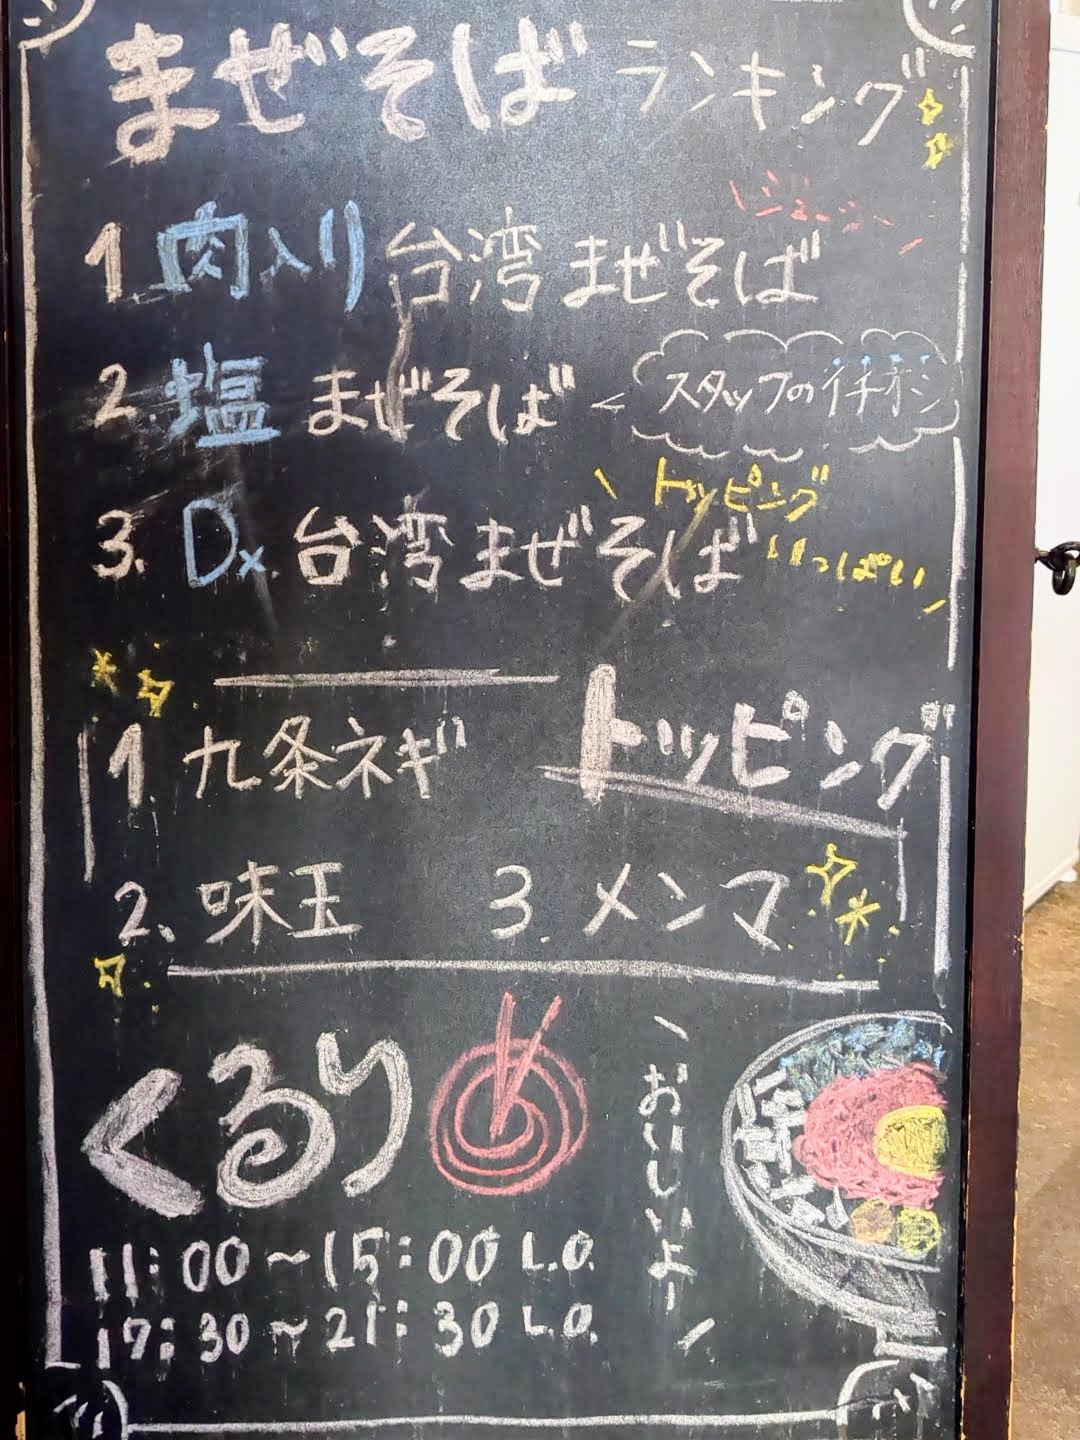 まぜそばランキング
1.肉入り台湾まぜそば
2.塩まぜそば
スタッフのイチオシ
3.Dx.台湾まぜそば
\トッピング
いっぱい/
トッピング
1.九条ネギ
2、味玉 3.メンマ
くるり
\おいしいよー/
11:00～15:00 L.O.
17:30～21:30 L.O.